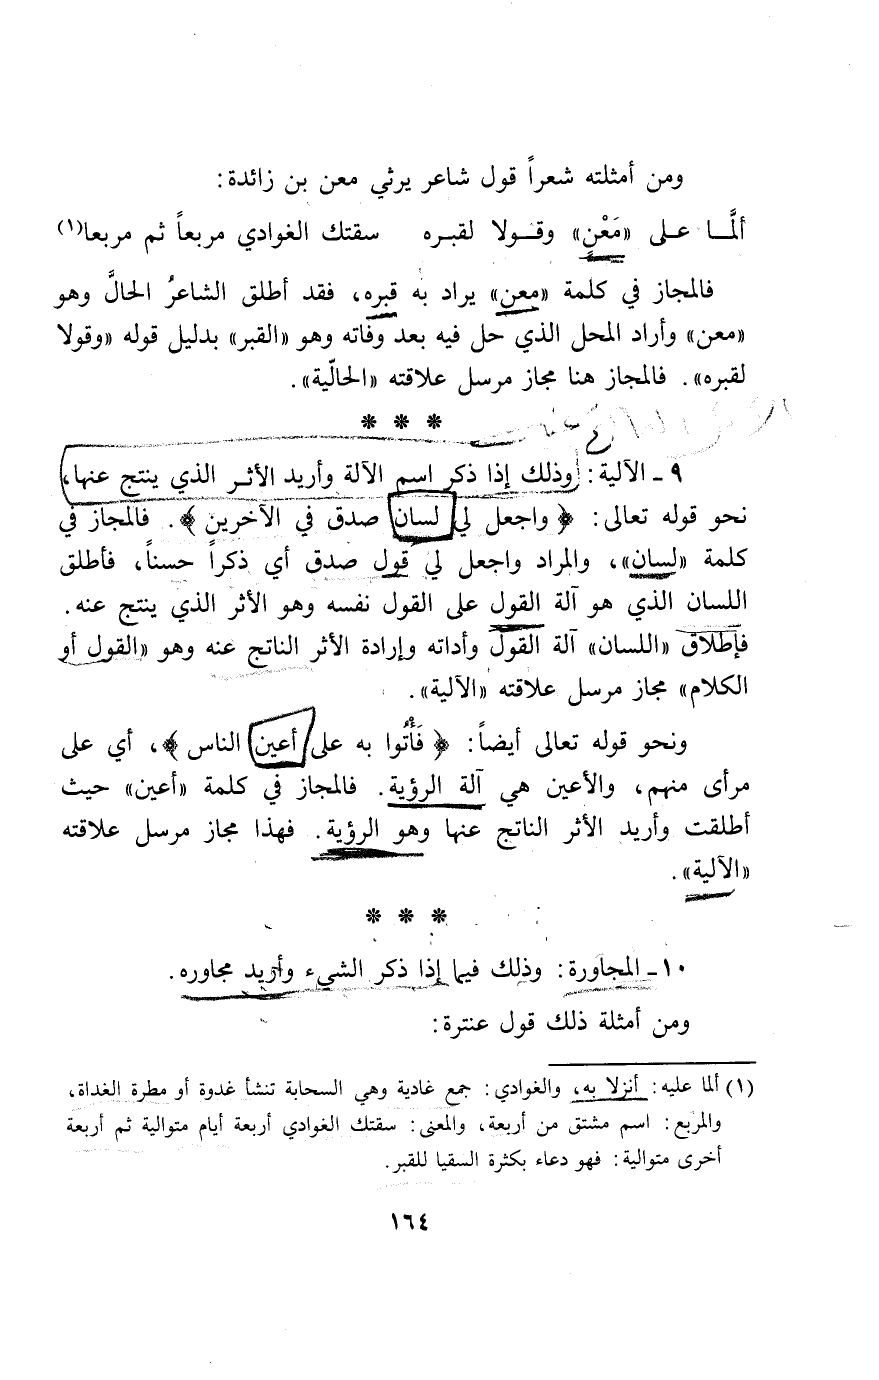 ومن أمثلته شعراً قول شاعر يرثي معن بن زائدة:
ألمَّـا عـلى «مَعْنٍ» وقـولا لقبـره سقتك الغوادي مربعاً ثم مربعا(١)
فالمجاز في كلمة «معن» يراد به قبره، فقد أطلق الشاعرُ الحالَّ وهو
«معن» وأراد المحل الذي حل فيه بعد وفاته وهو «القبر» بدليل قوله «وقولا
لقبره». فالمجاز هنا مجاز مرسل علاقته «الحالّية».
* * *
٩ ـ الآلية: وذلك إذا ذكر اسم الآلة وأريد الأثـر الذي ينتج عنها،
نحو قوله تعالى: ﴿ واجعل لي لسان صدق في الآخرين ﴾. فالمجاز في
كلمة «لسان»، والمراد واجعل لي قول صدق أي ذكراً حسناً، فأطلق
اللسان الذي هو آلة القول على القول نفسه وهو الأثر الذي ينتج عنه.
فإطلاق «اللسان» آلة القول وأداته وإرادة الأثر الناتج عنه وهو «القول أو
الكلام» مجاز مرسل علاقته «الآلية».
ونحو قوله تعالى أيضاً: ﴿ فَأْتُوا به على أعين الناس ﴾، أي على
مرأى منهم، والأعين هي آلة الرؤية. فالمجاز في كلمة «أعين» حيث
أطلقت وأريد الأثر الناتج عنها وهو الرؤية. فهذا مجاز مرسل علاقته
«الآلية».
* * *
١٠ ـ المجاورة: وذلك فيما إذا ذكر الشيء وأريد مجاوره.
ومن أمثلة ذلك قول عنترة:
(١) ألما عليه: أنزلا به، والغوادي: جمع غادية وهي السحابة تنشأ غدوة أو مطرة الغداة،
والمربع: اسم مشتق من أربعة، والمعنى: سقتك الغوادي أربعة أيام متوالية ثم أربعة
أخرى متوالية: فهو دعاء بكثرة السقيا للقبر.
١٦٤